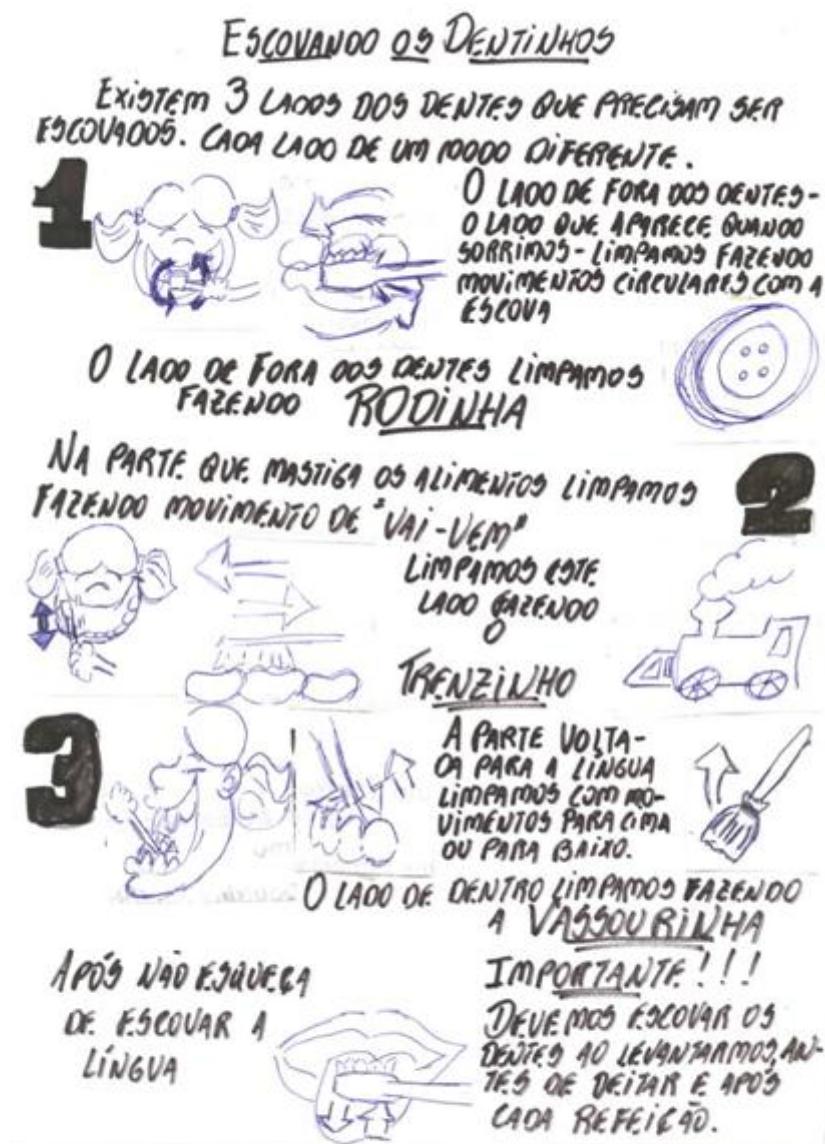 ESCOVANDO OS DENTINHOS
EXISTEM 3 LADOS DOS DENTES QUE PRECISAM SER
ESCOVADOS. CADA LADO DE UM MODO DIFERENTE.
1
O LADO DE FORA DOS DENTES -
O LADO QUE APARECE QUANDO
SORRIMOS - LIMPAMOS FAZENDO
MOVIMENTOS CIRCULARES COM A
ESCOVA
O LADO DE FORA DOS DENTES LIMPAMOS
FAZENDO RODINHA
NA PARTE QUE MASTIGA OS ALIMENTOS LIMPAMOS
FAZENDO MOVIMENTO DE "VAI-VEM"
2
LIMPAMOS ESTE
LADO FAZENDO
O
TRENZINHO
3
A PARTE VOLTA-
DA PARA A LÍNGUA
LIMPAMOS COM MO-
VIMENTOS PARA CIMA
OU PARA BAIXO.
O LADO DE DENTRO LIMPAMOS FAZENDO
A VASSOURINHA
APÓS NÃO ESQUEÇA
DE ESCOVAR A
LÍNGUA
IMPORTANTE!!!
DEVEMOS ESCOVAR OS
DENTES AO LEVANTARMOS, AN-
TES DE DEITAR E APÓS
CADA REFEIÇÃO.